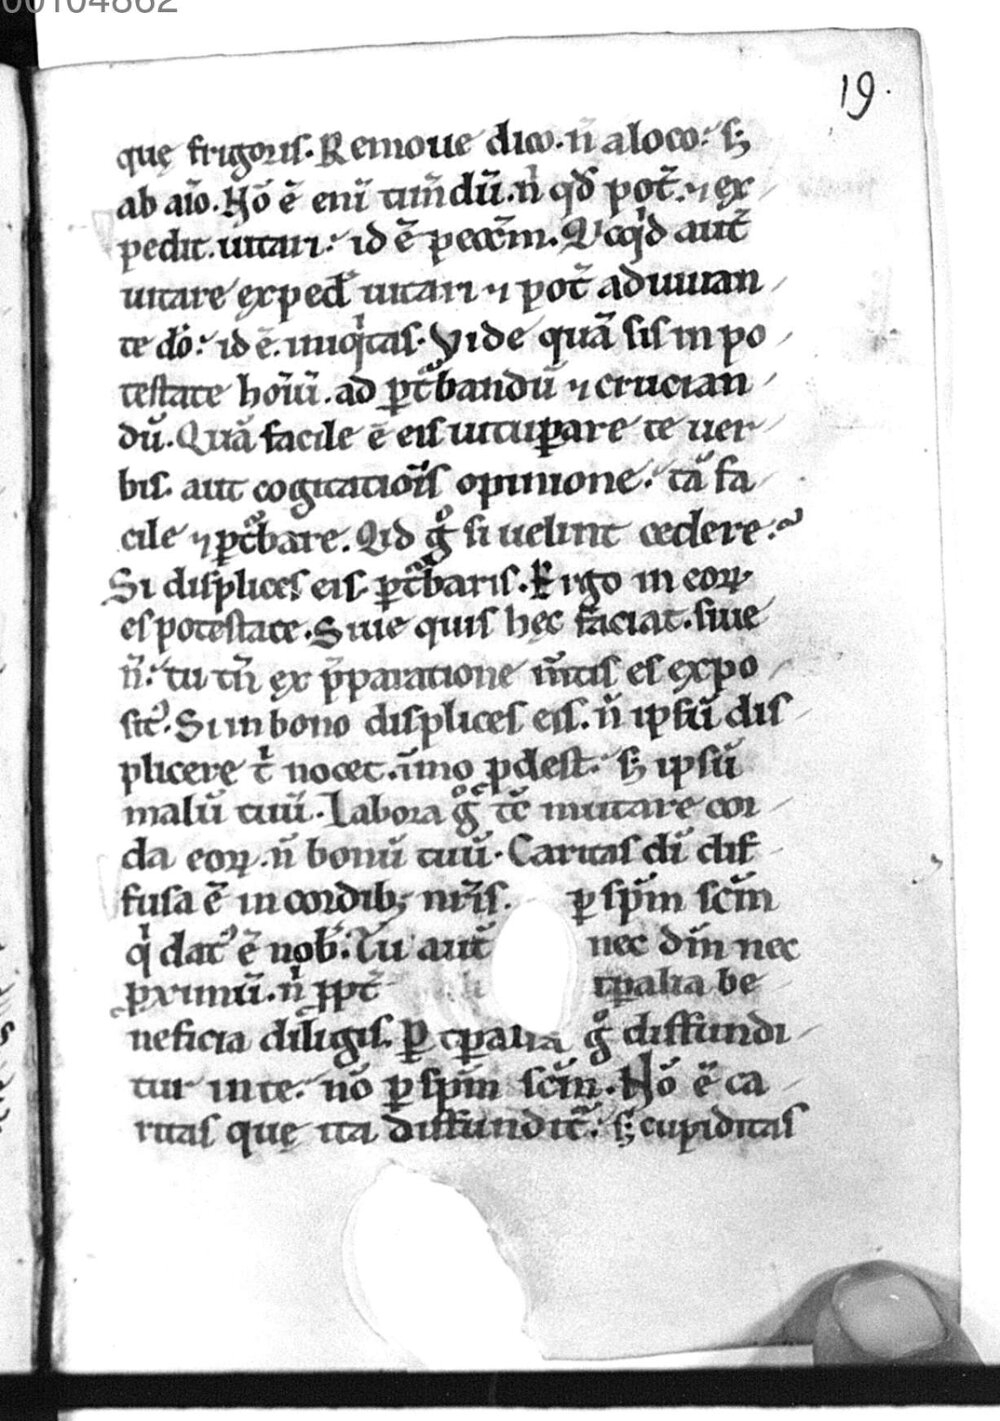 00104862
19.
quę frigoris. Remoue dico. n̄ a loco: sꝫ
ab aīo. Hō ē enī timdū. n̄ qd̄ pot̄. ⁊ ex
pedit. uitari: id ē peccm̄. Qͥcqͥd aut̄
uitare exped̄ uitari ⁊ pot̄ adiuuan
te dō: id ē. iniqͥtas. Vide quā sis in po
testate hoīū. ad ꝑt᷑bandū ⁊ crucian
dū. Quā facile ē eis uituꝑare te uer
bis. aut cogitatiōis opinione: tā fa
cile ⁊ ꝑt᷑bare. Qͥd gͦ si uelint cedere:
Si displices eis. ꝑt᷑baris. Ergo in eoꝝ
es potestate. Siue quis hęc faciat. siue
n̄: tu tn̄ ex p̄paratione m̄tis es expo
sit᷑. Si in bono displices eis. n̄ ipsū dis
plicere tͥ nocet. īmo ꝓdest. sꝫ ipsū
malū tuū. Labora gͦ
mutare cor
da eoꝝ. n̄ bonū tuū. Caritas dī dif
fusa ē in cordibꝫ nr̄is. ꝑ spm̄ scm̄
qͥ dat᷑ ē nob̄. Tu aut̄ nec dm̄ nec
ꝓximū. nͥ ꝓpt̄ tꝑalia be
neficia diligis. Ꝑ tꝑalia gͦ diffundi
tur in te: nō ꝑ spm̄ scm̄. Hō ē ca
ritas quę ita diffundit᷑: sꝫ cupiditas